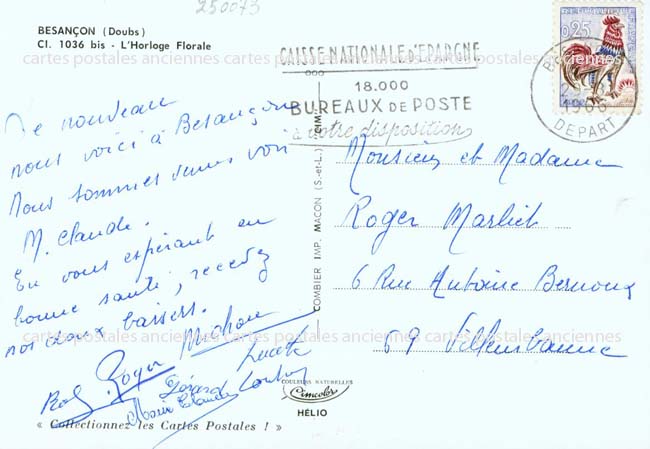 250073
BESANÇON (Doubs)
Cl. 1036 bis - L'Horloge Florale
cartes postales anciennes cartes postales anciennes cartes postales anciennes
CAISSE NATIONALE D'ÉPARGNE
18.000
BUREAUX DE POSTE
à votre disposition
0,25
DEPART
De nouveau
nous voici à Besançon
Nous sommes venus voir
M. Claude.
En vous espérant en
bonne santé, recevez
nos doux baisers.
Roger Michou
Gérard Lucette
Marie Claude
COMBIER IMP. MACON (S.-et-L.) "CIM"
Monsieur et Madame
Roger Marliet
6 Rue Antoine Bernoux
69 Villeurbanne
cartes postales anciennes cartes postales anciennes cartes postales anciennes
COULEURS NATURELLES
Cimcolor
HÉLIO
« Collectionnez les Cartes Postales ! »